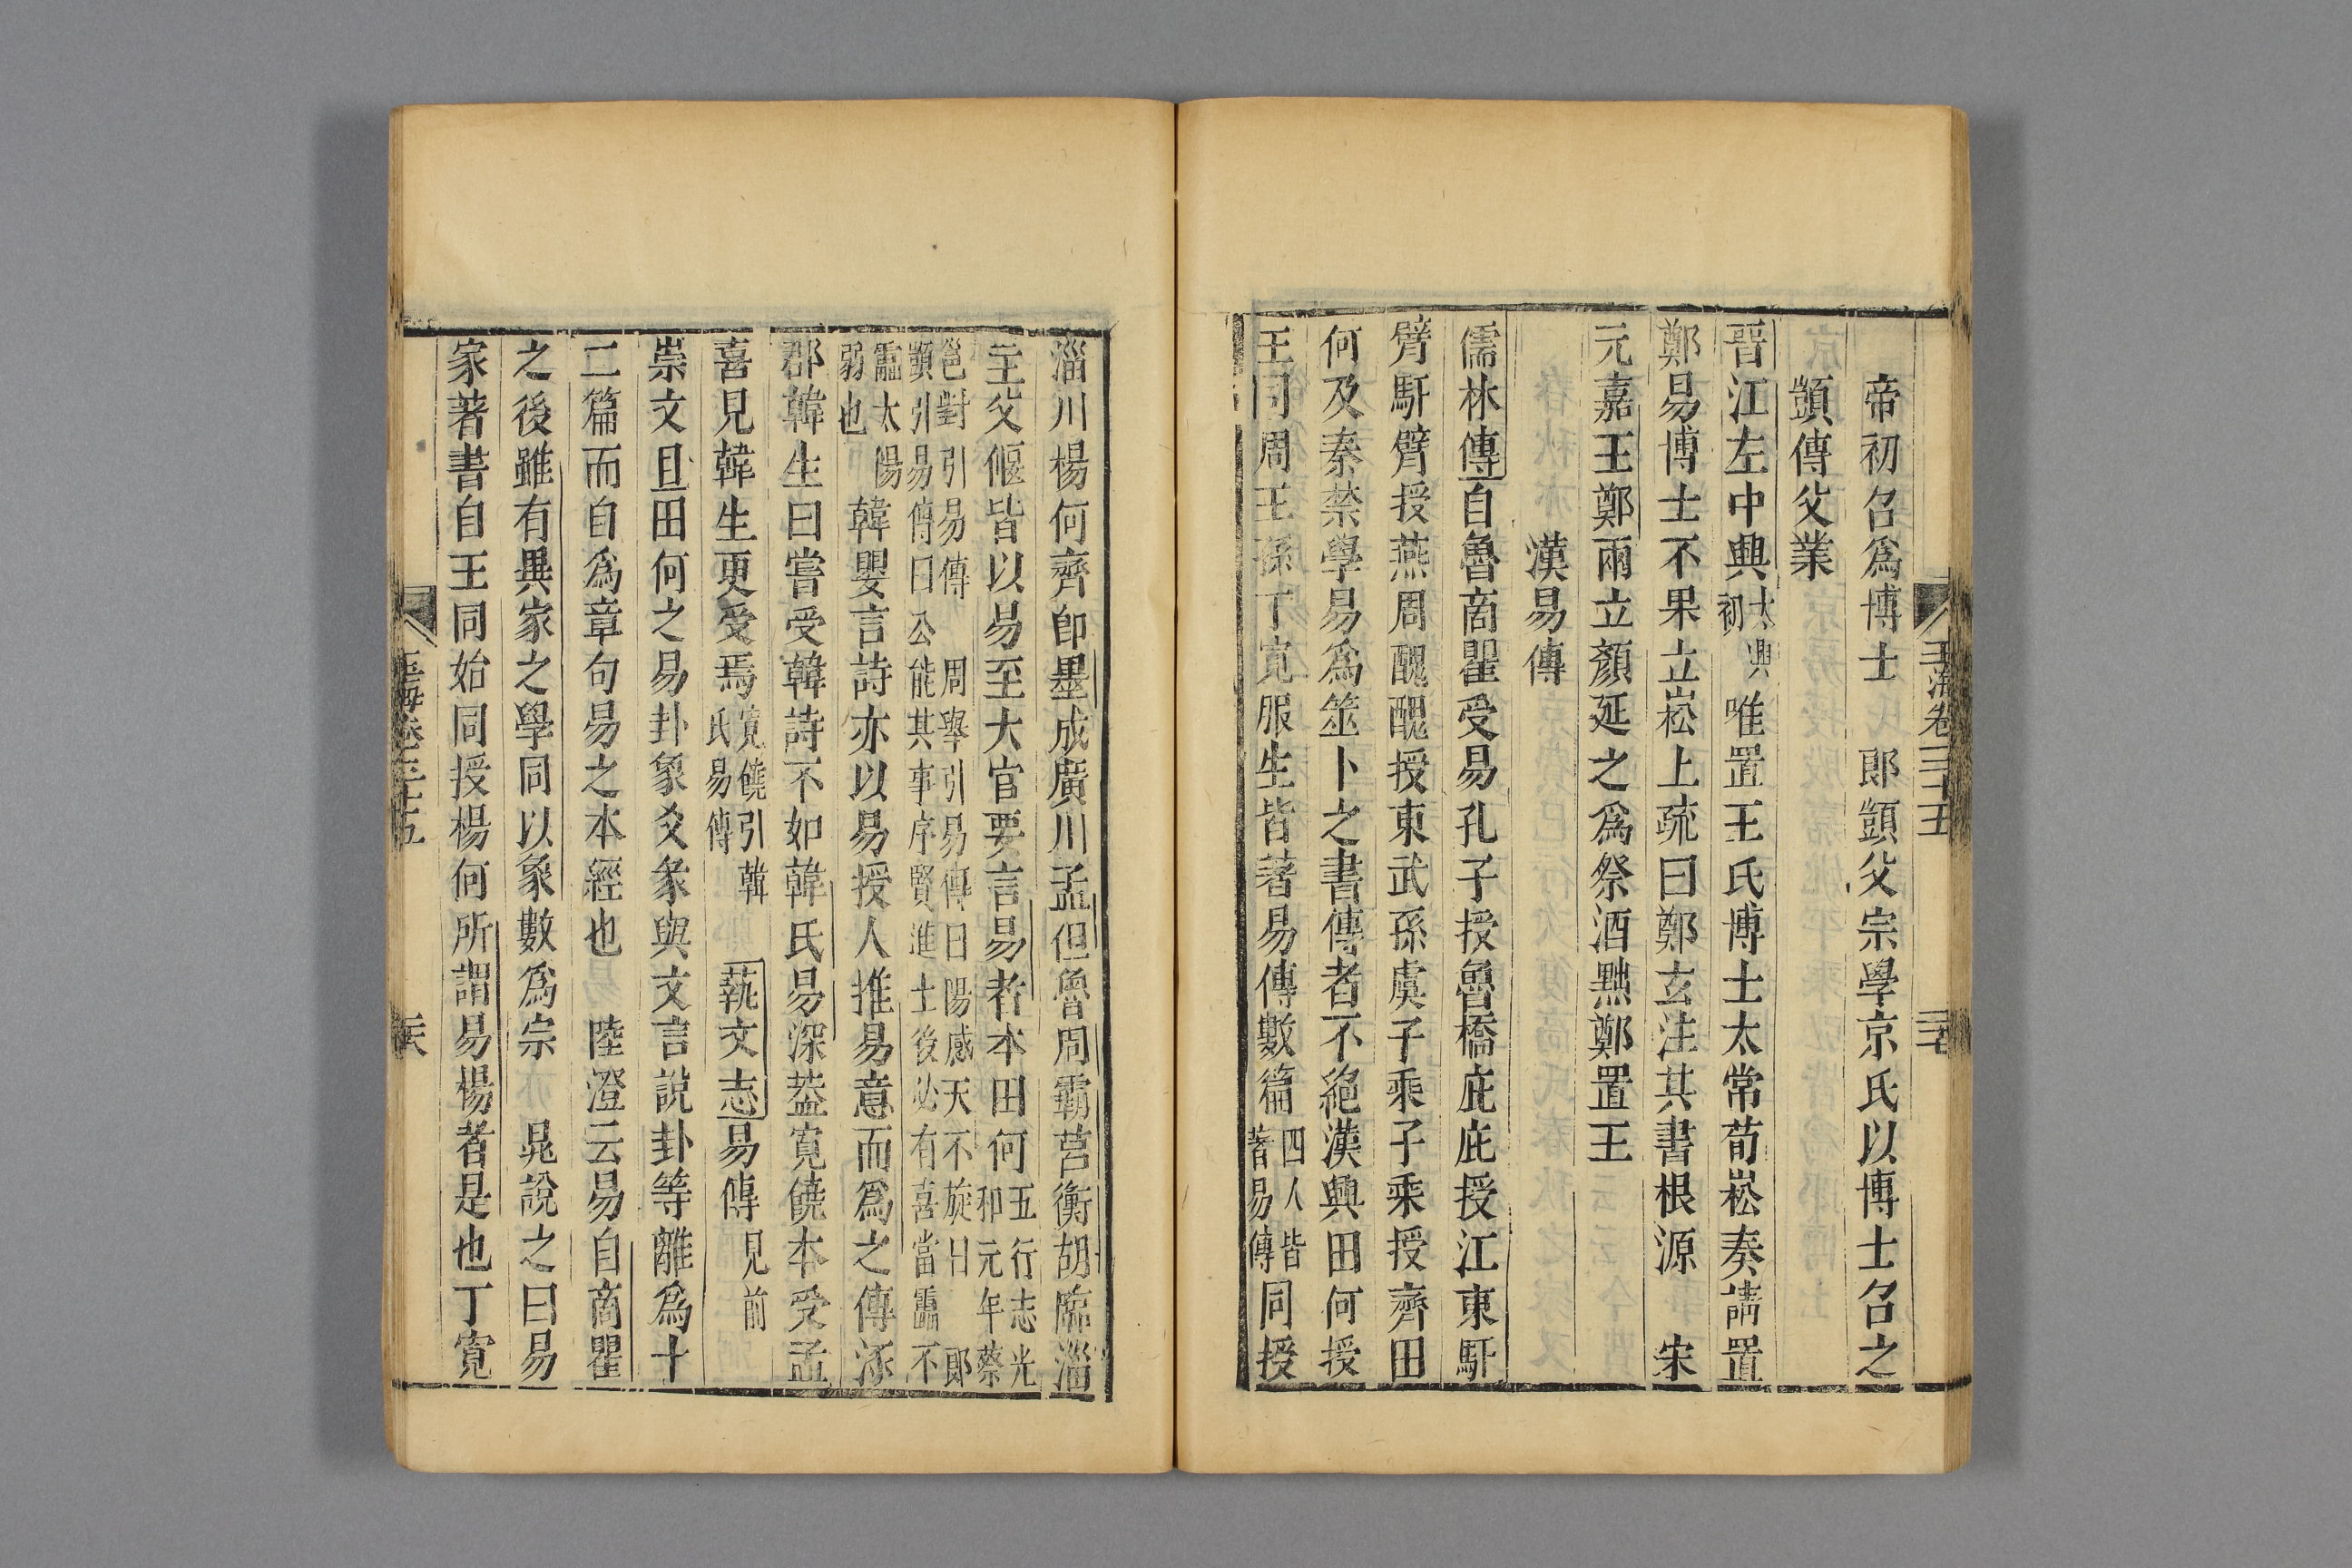 玉海卷三十五
帝初名爲博士　郞顗父宗學京氏以博士召之
顗傳父業
晉江左中興太興初唯置王氏博士太常荀崧奏請置
鄭易博士不果立崧上疏曰鄭玄注其書根源　宋
元嘉王鄭兩立顏延之爲祭酒黜鄭置王
漢易傳
儒林傳自魯商瞿受易孔子授魯橋庇庇授江東馯
臂馯臂授燕周醜醜授東武孫虞子乘子乘授齊田
何及秦禁學易爲筮卜之書傳者不絕漢興田何授
王同周王孫丁寬服生皆著易傳數篇四人皆著易傳同授
淄川楊何齊卽墨成廣川孟但魯周霸莒衡胡臨淄
主父偃皆以易至大官要言易者本田何五行志光和元年蔡
邕對引易傳　周舉引易傳曰陽感天不旋日　郞
顗引易傳曰公能其事序賢進士後必有喜當靁不
靁太陽弱也　韓嬰言詩亦以易授人推易意而爲之傳涿
郡韓生曰嘗受韓詩不如韓氏易深葢寬饒本受孟
喜見韓生更受焉寬饒引韓氏易傳　蓺文志易傳見前
崇文目田何之易卦象爻彖與文言說卦等離爲十
二篇而自爲章句易之本經也　陸澄云易自商瞿
之後雖有異家之學同以象數爲宗　晁說之曰易
家著書自王同始同授楊何所謂易楊者是也丁寬
玉海卷三十五